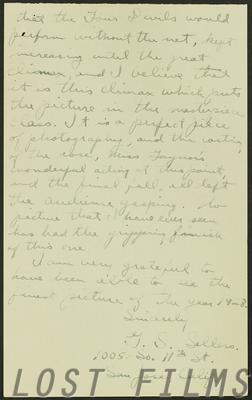 that the Four Devils would
perform without the net, kept
increasing until the great
climax, and I believe that
it is this climax which puts
the picture in the masterpiece
class. It is a perfect piece
of photography, and the
of the Miss Gaynor's
wonderful acting at this point,
and the final fall, all left
the audience gasping. No
picture that I have ever seen
has had the gripping finish
of this one.
I am very grateful to
have been able to see the
finest picture of the year 1928.
Sincerely
G. S. Sellers.
1005 So. 11th St.
San Jose, Calif.
LOST FILMS